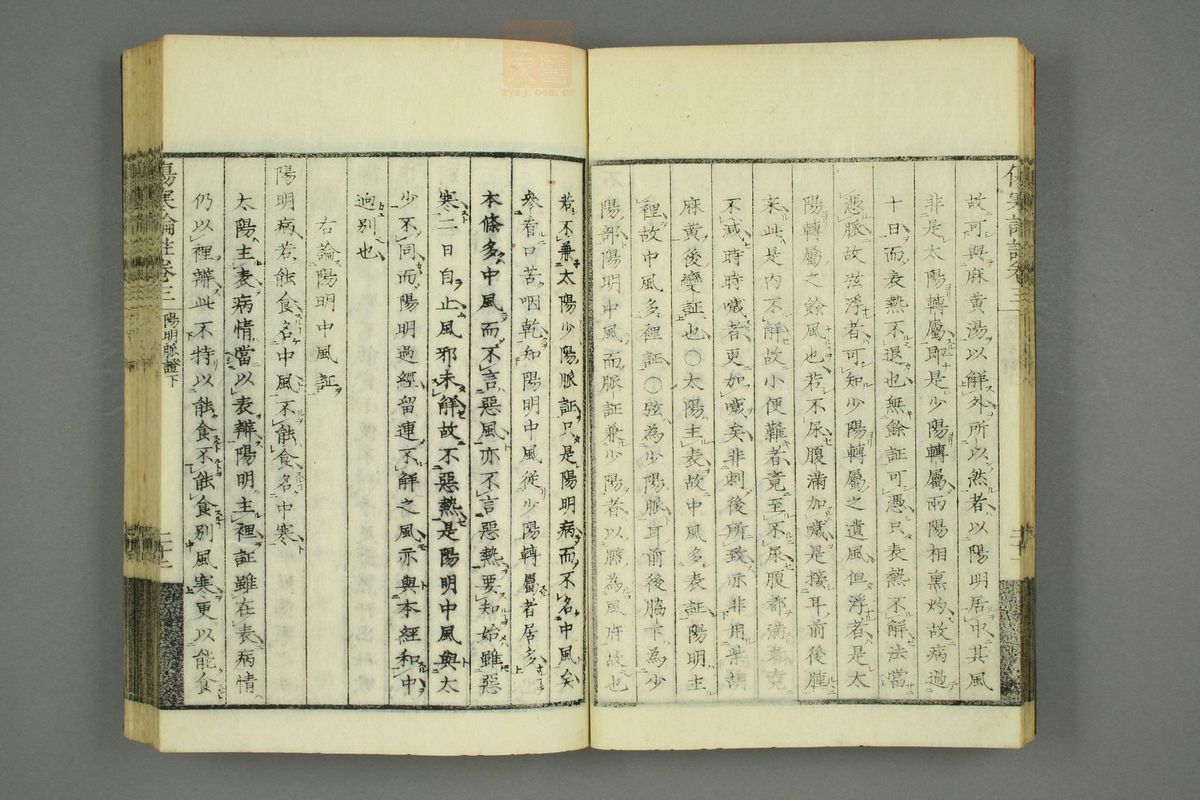 故可與麻黃湯以解外所以然者以陽明居中其風
非是太陽轉屬即是少陽轉屬兩陽相熏灼故病過
十日而表熱不退也無餘証可憑只表熱不解法當
憑脈故弦浮者可知少陽轉屬之遺風但浮者是太
陽轉屬之餘風也若不尿腹滿加噦是接耳前後腫
來此是內不解故小便難者竟至不尿腹都滿者竟
不減時時噦者更加噦矣非刺後所致亦非用柴胡
麻黃後變証也〇太陽主表故中風多表証陽明主
裡故中風多裡証〇弦為少陽脈耳前後脇下為少
陽部陽明中風而脈証兼少陽者以膽為風府故也
若不兼太陽少陽脈証只是陽明病而不名中風矣
參看口苦咽乾知陽明中風從少陽轉屬者居多
本條多中風而不言惡風亦不言惡熱要知始雖惡
寒二日自止風邪未解故不惡熱是陽明中風與太
少不同而陽明過經留連不解之風亦與本經初中
逈別也
右論陽明中風証
陽明病若能食名中風不能食名中寒
太陽主表病情當以表辨陽明主裡証雖在表病情
仍以裡辨此不特以能食不能食別風寒更以能食
傷寒論註卷三
陽明脈證下